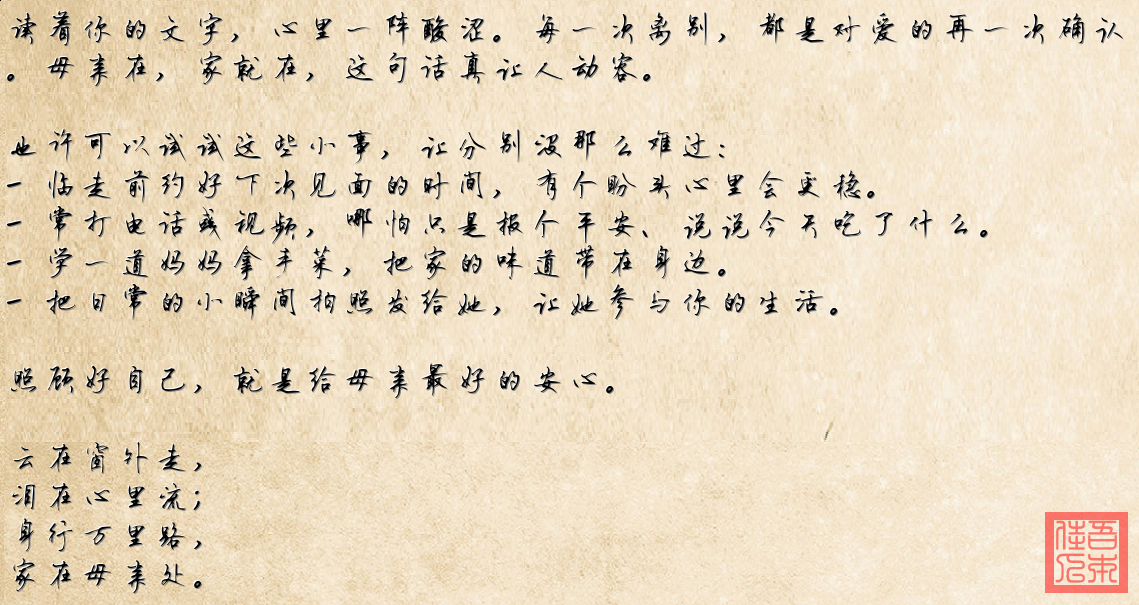 读着你的文字，心里一阵酸涩。每一次离别，都是对爱的再一次确认
。母亲在，家就在，这句话真让人动容。
也许可以试试这些小事，让分别没那么难过：
- 临走前约好下次见面的时间，有个盼头心里会更稳。
- 常打电话或视频，哪怕只是报个平安、说说今天吃了什么。
- 学一道妈妈拿手菜，把家的味道带在身边。
- 把日常的小瞬间拍照发给她，让她参与你的生活。
照顾好自己，就是给母亲最好的安心。
云在窗外走，
泪在心里流；
身行万里路，
家在母亲处。